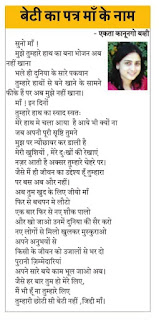 बेटी का पत्र माँ के नाम
- एकता कानूनगो बक्षी
सुनो माँ !
मुझे तुम्हारे हाथ का बना भोजन अब
नहीं खाना
भले ही दुनिया के सारे पकवान
तुम्हारे हाथों से बने खाने के सामने
फीके हैं पर अब मुझे नहीं खाना।
माँ ! इन दिनों
तुम्हारे हाथ का स्वाद स्वतः
मेरे हाथ में चला आया है आये भी क्यों ना
जब अपनी पूरी सृष्टि तुमने
मुझ पर न्यौछावर कर डाली है
मेरी खुशियाँ , मेरे दुःखों की रेखाएं
नज़र आती है अक्सर तुम्हारे चेहरे पर।
जैसे मैं ही जीवन का उद्देश्य हूँ तुम्हारा
पर बस अब और नहीं।
अब तुम खुद के लिए जीयो माँ
फिर से बचपन में लौटो
एक बार फिर से नए शौक पालो
और खो जाओ उनमें दुनिया की सैर करो
नए लोगों से मिलो खुलकर मुस्कुराओ
अपने अनुभवों से
किसी के जीवन को उजालों से भर दो
पुरानी ज़िम्मेदारियां
अपने सारे बचे काम भूल जाओ अब।
जैसे हर बार तुम हो मेरे लिए,
मैं भी हूँ ना तुम्हारे लिए
तुम्हारी छोटी सी बेटी नहीं , जिद्दी माँ।